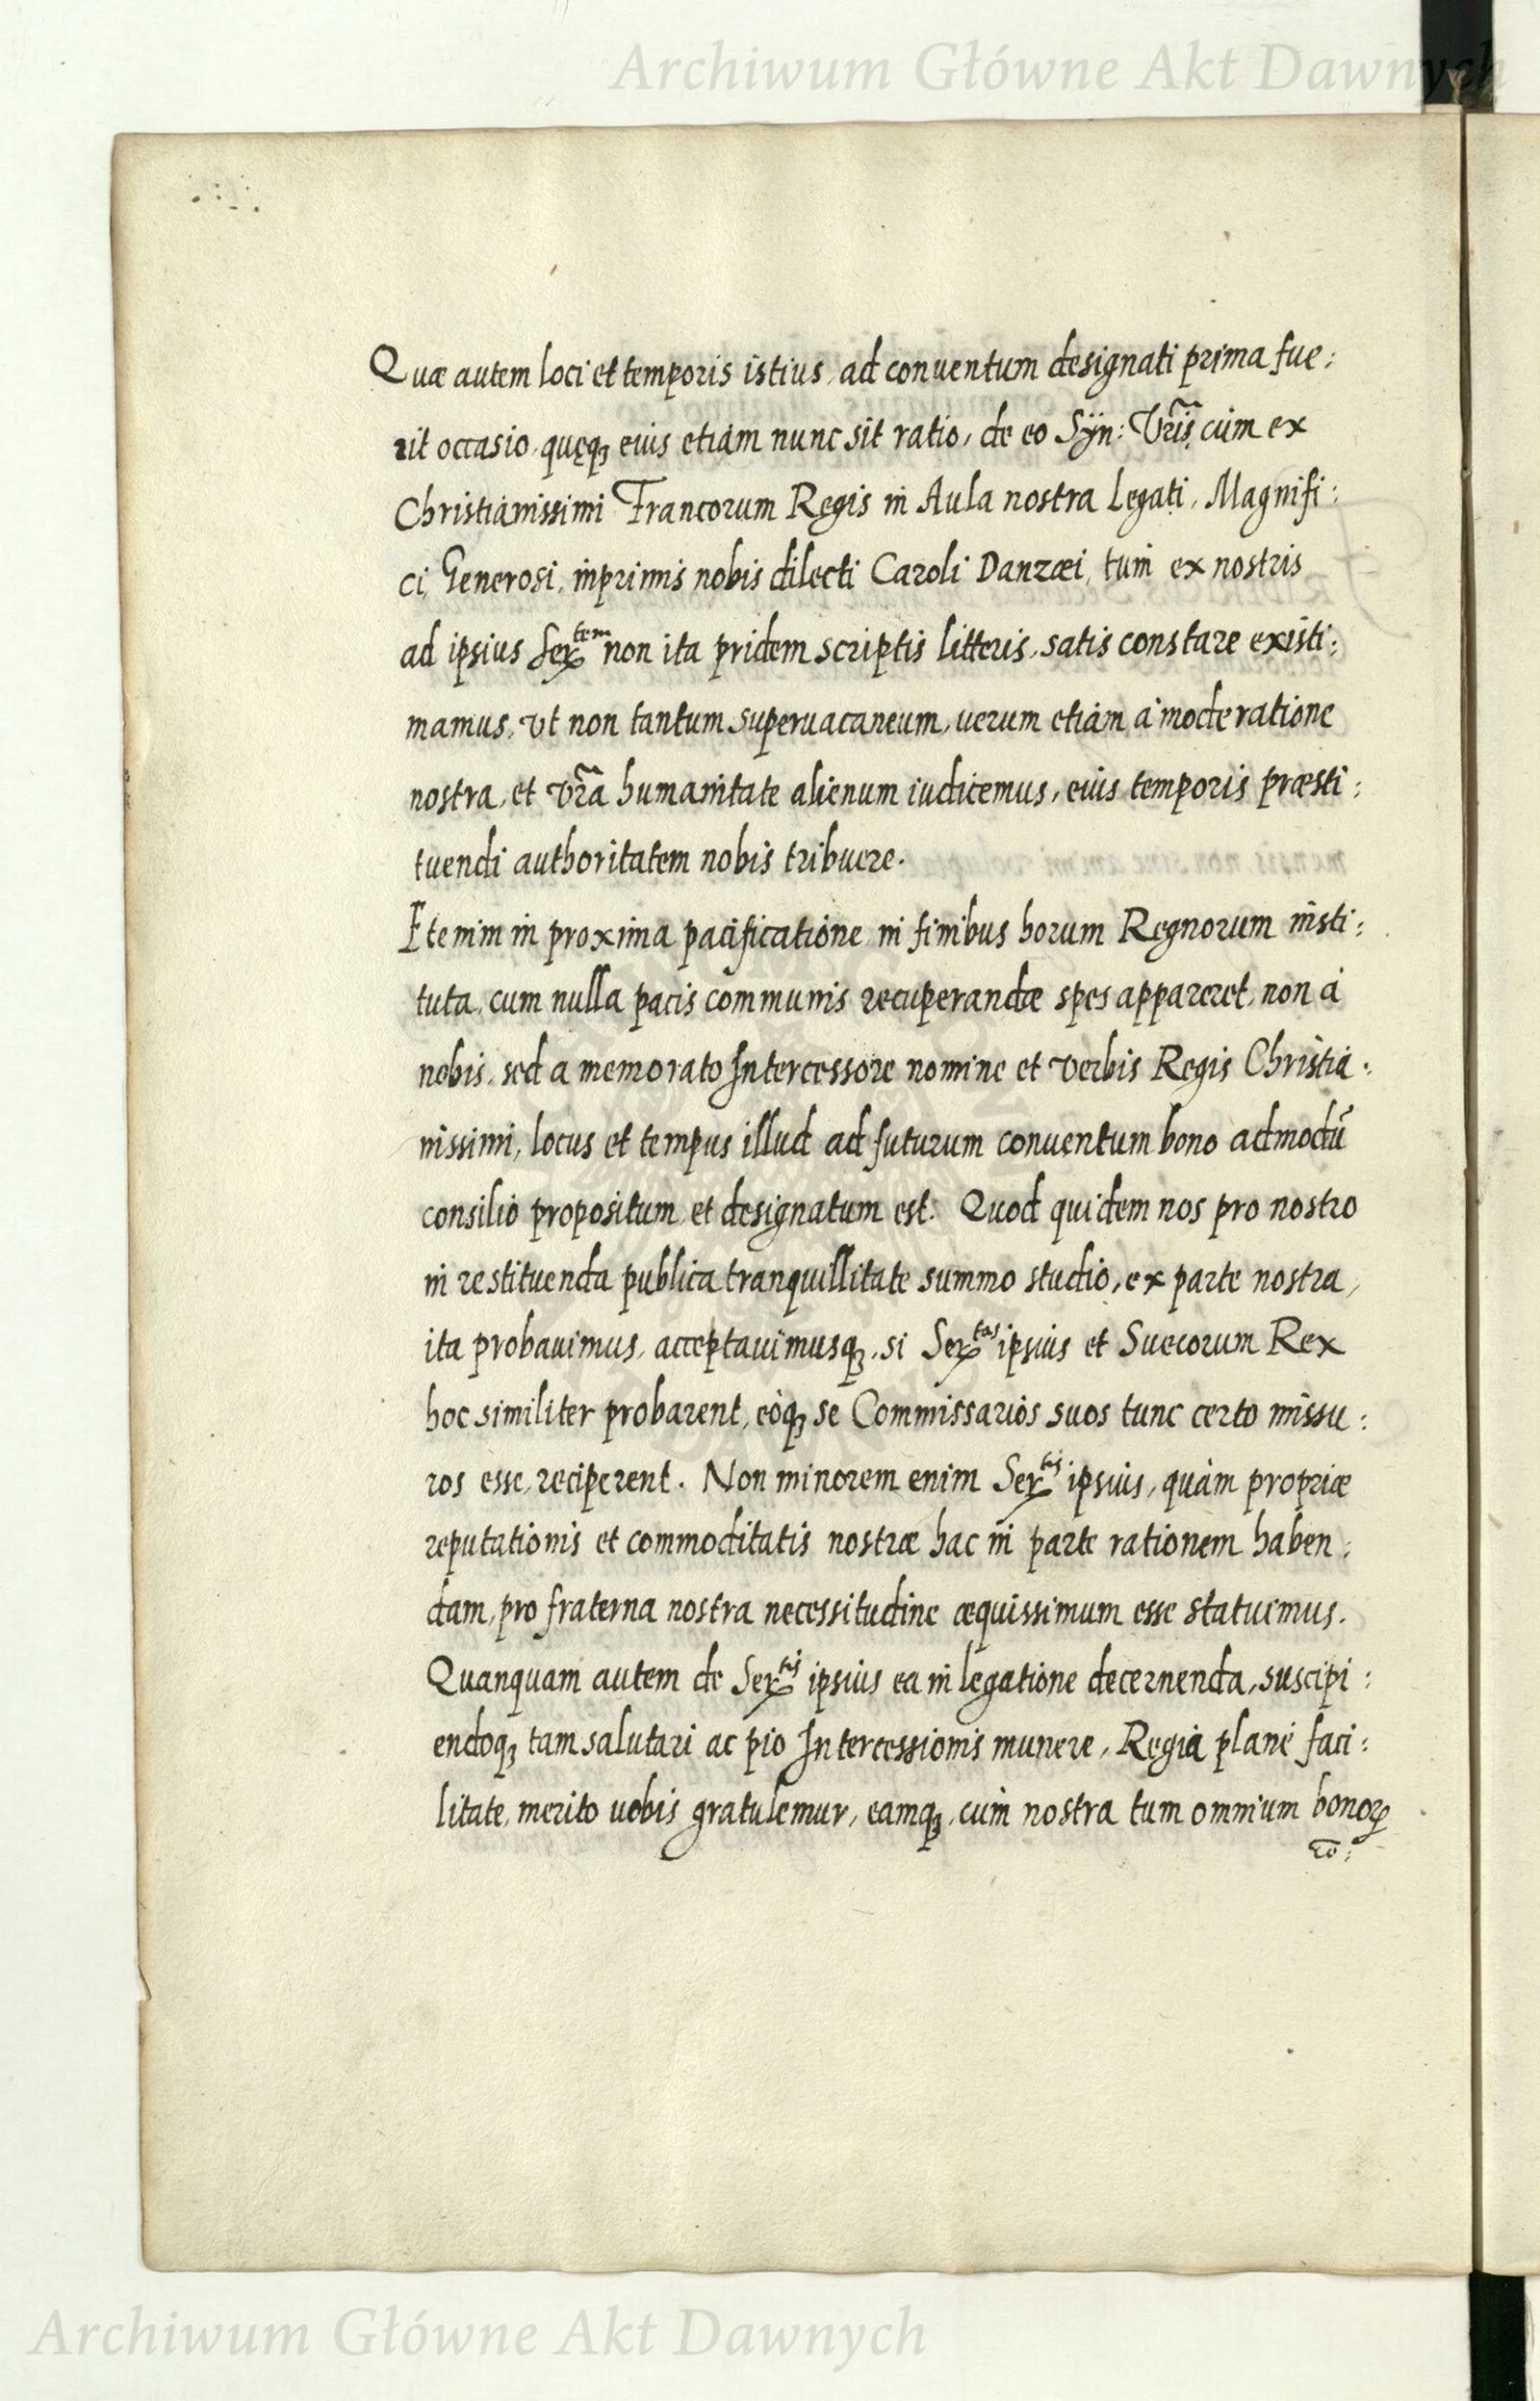 Archiwum Główne Akt Dawnych
Quæ autem loci et temporis istius, ad conuentum designati prima fue:
rit occasio, quęqꝫ eius etiam nunc sit ratio, de eo Sÿn: Vr̃is cùm ex
Christianissimi Francorum Regis in Aula nostra Legati, Magnifi:
ci, Generosi, inprimis nobis dilecti Caroli Danzæi, tum ex nostris
ad ipsius Serᵗᵉᵐ non ita pridem scriptis litteris, satis constare existi:
mamus, vt non tantum superuacaneum, uerum etiam à moderatione
nostra, et vr̃a humanitate alienum iudicemus, eius temporis præsti:
tuendi authoritatem nobis tribuere.
Etenim in proxima pacificatione in finibus horum Regnorum insti:
tuta, cum nulla pacis communis recuperandæ spes appareret, non à
nobis, sed a memorato Intercessore nomine et verbis Regis Christia:
nissimi, locus et tempus illud ad futurum conuentum bono admodũ
consilio propositum, et designatum est. Quod quidem nos pro nostro
in restituenda publica tranquillitate summo studio, ex parte nostra,
ita probauimus, acceptauimusqꝫ, si Serᵗᵃˢ ipsius et Suecorum Rex
hoc similiter probarent, eòqꝫ se Commissarios suos tunc certo missu:
ros esse, reciperent. Non minorem enim Serᵗⁱˢ ipsius, quàm propriæ
reputationis et commoditatis nostræ hac in parte rationem haben:
dam, pro fraterna nostra necessitudine æquissimum esse statuimus.
Quanquam autem de Serᵗⁱˢ ipsius ea in legatione decernenda, suscipi:
endoqꝫ tam salutari ac pio Intercessionis munere, Regia planè faci:
litate, merito uobis gratulemur, eamqꝫ, cùm nostra tum omnium bonoꝝ
c̃o:
Archiwum Główne Akt Dawnych